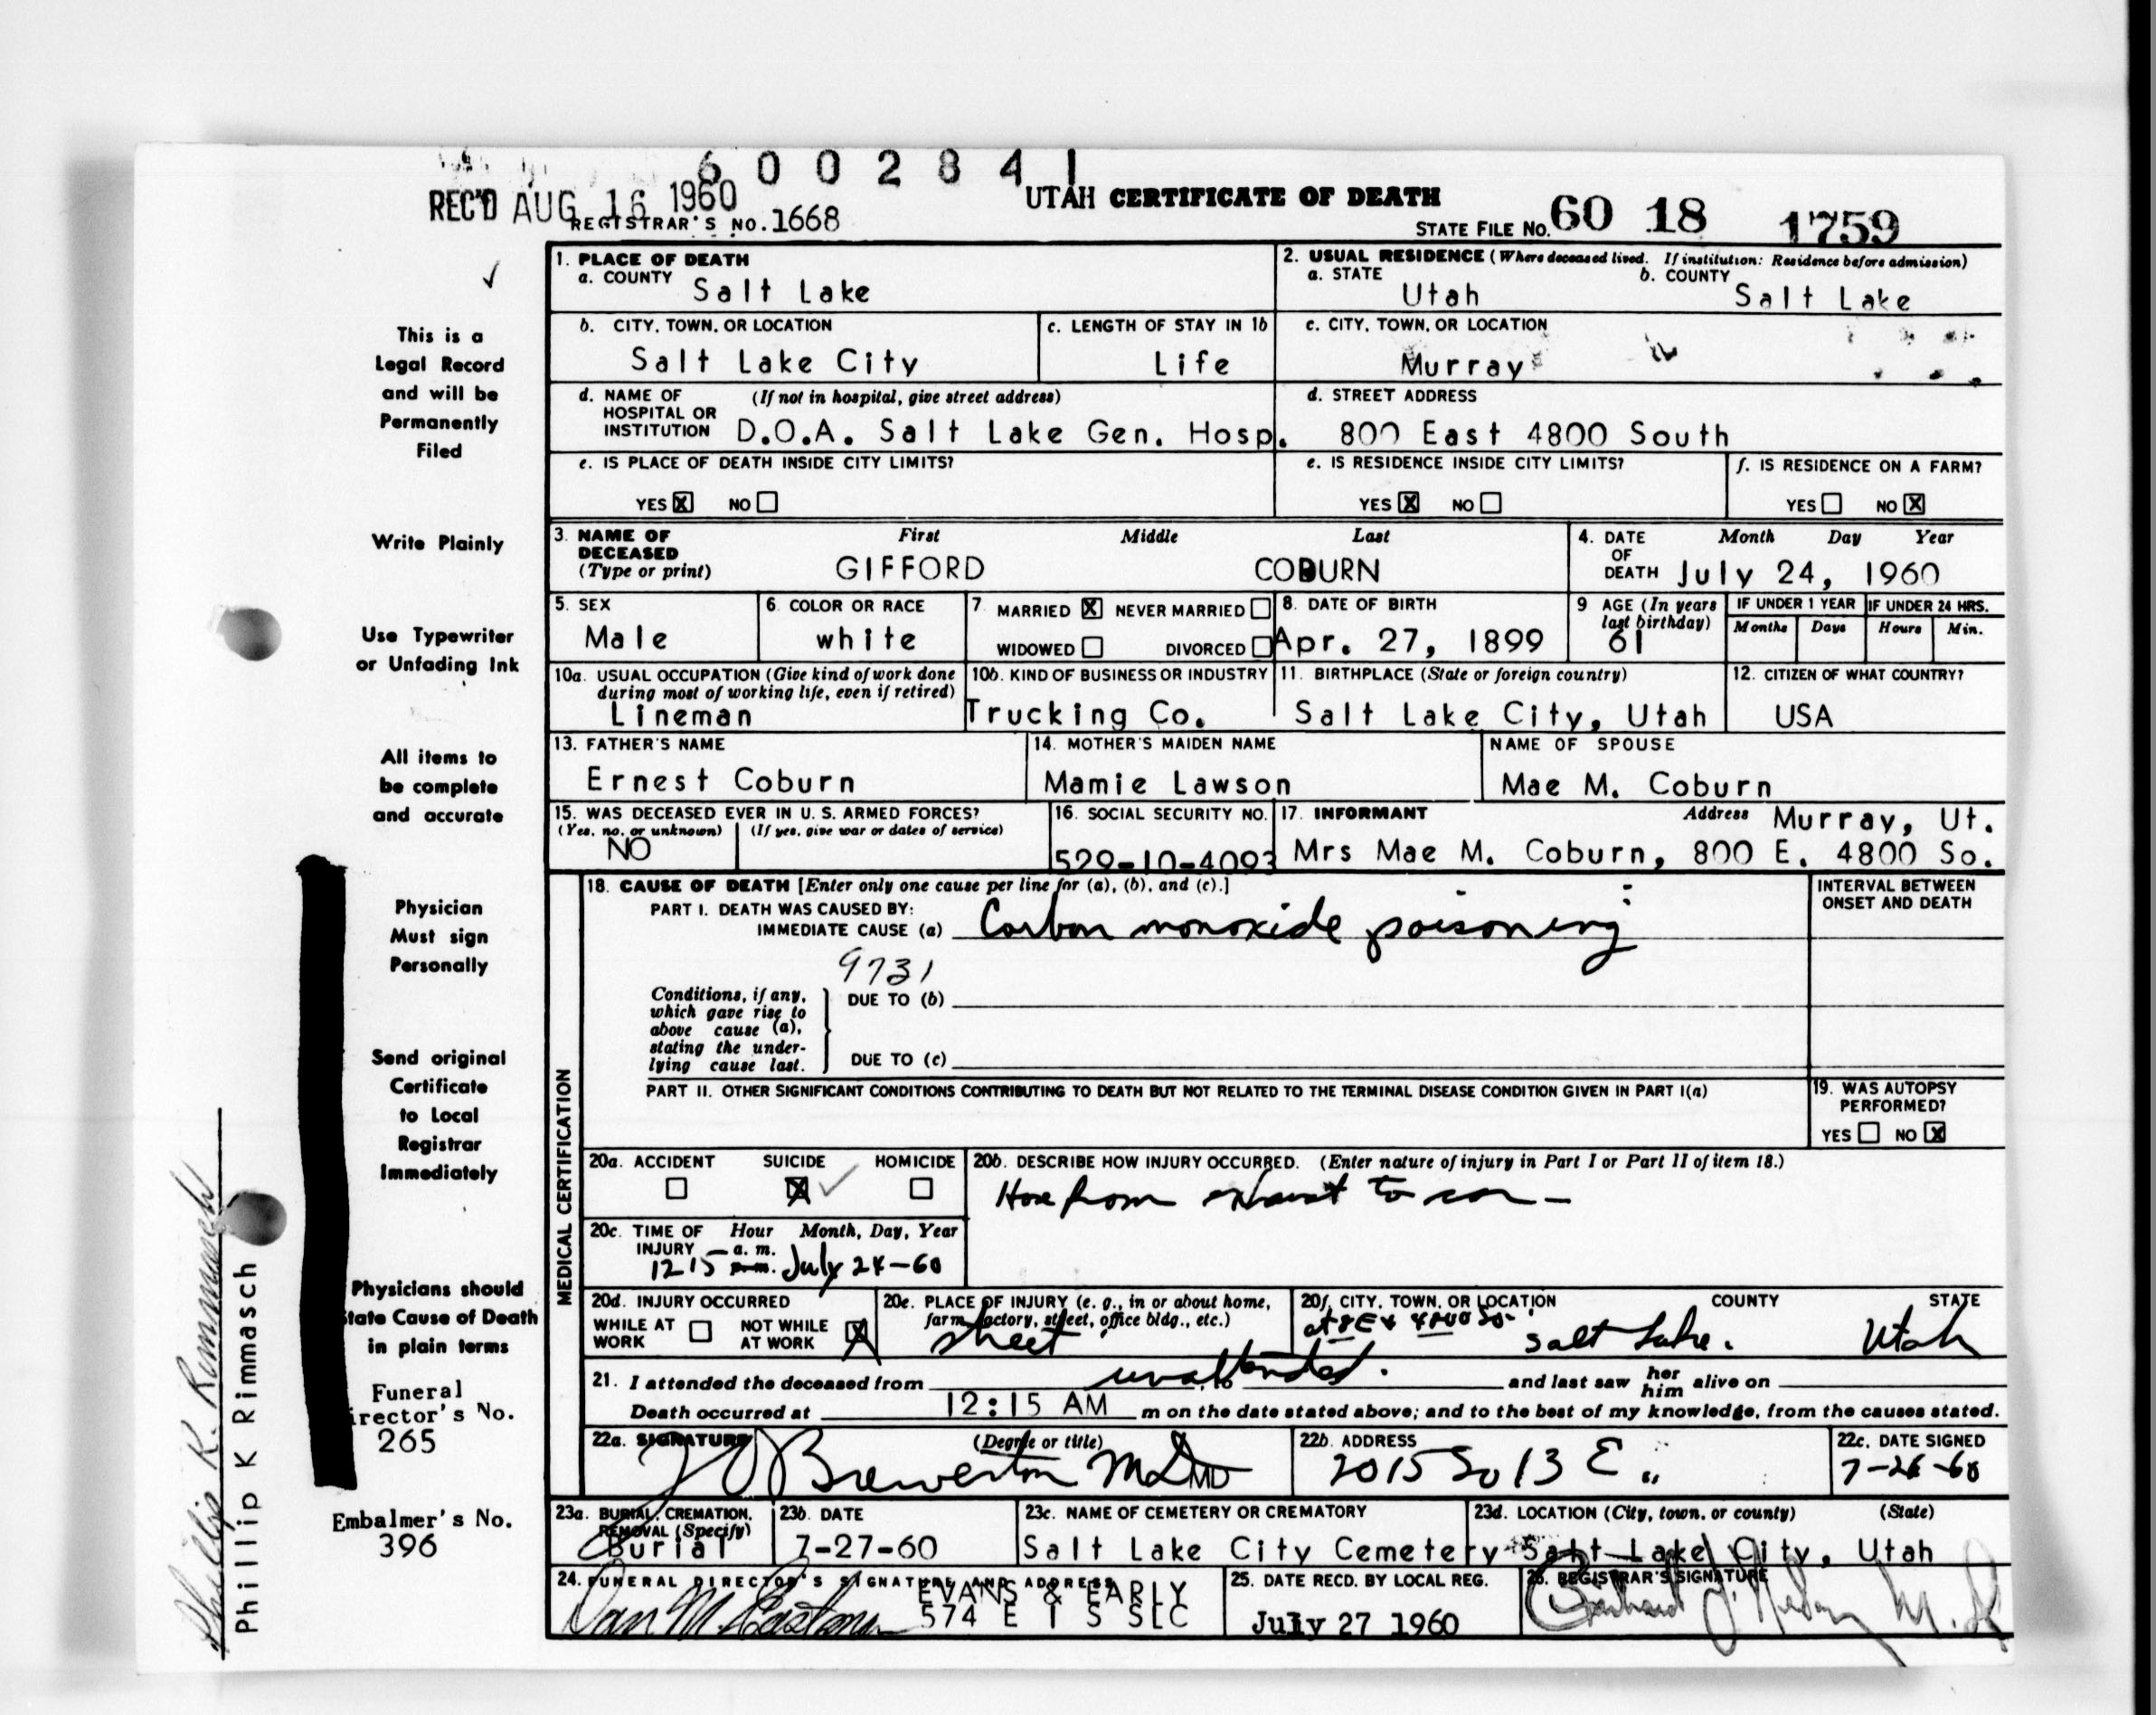 6002841
REC'D AUG 16 1960
UTAH CERTIFICATE OF DEATH
REGISTRAR'S NO. 1668
STATE FILE NO. 60 18 1759
1. PLACE OF DEATH
a. COUNTY Salt Lake
2. USUAL RESIDENCE (Where deceased lived. If institution: Residence before admission)
a. STATE Utah b. COUNTY Salt Lake
b. CITY, TOWN, OR LOCATION Salt Lake City
c. LENGTH OF STAY IN 1b Life
c. CITY, TOWN, OR LOCATION Murray
d. NAME OF HOSPITAL OR INSTITUTION (If not in hospital, give street address) D.O.A. Salt Lake Gen. Hosp.
d. STREET ADDRESS 800 East 4800 South
e. IS PLACE OF DEATH INSIDE CITY LIMITS? YES X NO
e. IS RESIDENCE INSIDE CITY LIMITS? YES X NO
f. IS RESIDENCE ON A FARM? YES NO X
3. NAME OF DECEASED (Type or print) First Middle Last
GIFFORD COBURN
4. DATE OF DEATH Month Day Year
July 24, 1960
5. SEX Male
6. COLOR OR RACE white
7 MARRIED X NEVER MARRIED
WIDOWED DIVORCED
8. DATE OF BIRTH Apr. 27, 1899
9 AGE (In years last birthday) 61
IF UNDER 1 YEAR Months Days
IF UNDER 24 HRS. Hours Min.
10a. USUAL OCCUPATION (Give kind of work done during most of working life, even if retired) Lineman
10b. KIND OF BUSINESS OR INDUSTRY Trucking Co.
11. BIRTHPLACE (State or foreign country) Salt Lake City, Utah
12. CITIZEN OF WHAT COUNTRY? USA
13. FATHER'S NAME Ernest Coburn
14. MOTHER'S MAIDEN NAME Mamie Lawson
NAME OF SPOUSE Mae M. Coburn
15. WAS DECEASED EVER IN U. S. ARMED FORCES?
(Yes, no, or unknown) (If yes, give war or dates of service)
NO
16. SOCIAL SECURITY NO. 529-10-4093
17. INFORMANT Address Murray, Ut.
Mrs Mae M. Coburn, 800 E. 4800 So.
MEDICAL CERTIFICATION
18. CAUSE OF DEATH [Enter only one cause per line for (a), (b), and (c).]
INTERVAL BETWEEN ONSET AND DEATH
PART I. DEATH WAS CAUSED BY:
IMMEDIATE CAUSE (a) Carbon monoxide poisoning
9731
Conditions, if any, which gave rise to above cause (a), stating the underlying cause last.
DUE TO (b)
DUE TO (c)
PART II. OTHER SIGNIFICANT CONDITIONS CONTRIBUTING TO DEATH BUT NOT RELATED TO THE TERMINAL DISEASE CONDITION GIVEN IN PART I(a)
19. WAS AUTOPSY PERFORMED?
YES NO X
20a. ACCIDENT SUICIDE X HOMICIDE
20b. DESCRIBE HOW INJURY OCCURRED. (Enter nature of injury in Part I or Part II of item 18.)
Hose from exhaust to car -
20c. TIME OF INJURY Hour Month, Day, Year
12 15 a. m. p. m. July 24-60
20d. INJURY OCCURRED
WHILE AT WORK NOT WHILE AT WORK X
20e. PLACE OF INJURY (e. g., in or about home, farm, factory, street, office bldg., etc.)
street
20f. CITY, TOWN, OR LOCATION COUNTY STATE
at 8E & 4800 So
Salt Lake. Utah
21. I attended the deceased from unattended. to and last saw her him alive on
Death occurred at 12:15 AM m on the date stated above; and to the best of my knowledge, from the causes stated.
22a. SIGNATURE (Degree or title) Brewerton MD MD
22b. ADDRESS 2015 So 13 E
22c. DATE SIGNED 7-26-60
23a. BURIAL, CREMATION, REMOVAL (Specify) Burial
23b. DATE 7-27-60
23c. NAME OF CEMETERY OR CREMATORY Salt Lake City Cemetery
23d. LOCATION (City, town, or county) (State) Salt Lake City, Utah
24. FUNERAL DIRECTOR'S SIGNATURE AND ADDRESS
EVANS & EARLY
574 E 1 S SLC
25. DATE RECD. BY LOCAL REG. July 27 1960
26. REGISTRAR'S SIGNATURE
This is a
Legal Record
and will be
Permanently
Filed
Write Plainly
Use Typewriter
or Unfading Ink
All items to
be complete
and accurate
Physician
Must sign
Personally
Send original
Certificate
to Local
Registrar
Immediately
Physicians should
State Cause of Death
in plain terms
Funeral
irector's No.
265
Embalmer's No.
396
Phillip K. Rimmasch
Phillip K Rimmasch